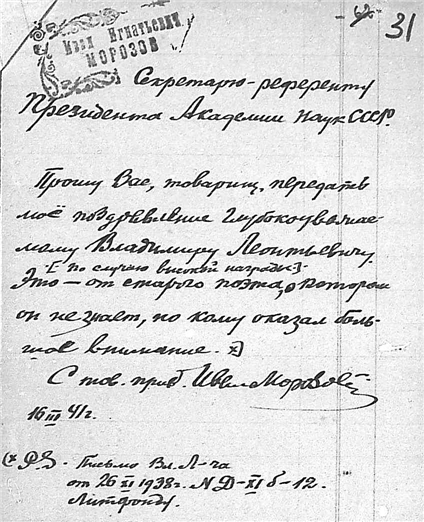 31
Иван Игнатьевич
МОРОЗОВ
Секретарю-референту
Президента Академии Наук СССР.
Прошу Вас, товарищ, передать
моё поздравление глубокоуважае-
мому Владимиру Леонтьевичу
[по случаю высокой награды].
Это — от старого поэта, о котором
он не знает, но кому оказал боль-
шое внимание. x)
С тов. прив. Иван Морозов
16 III 41 г.
(x P.S. Письмо Вл. Л-ча
от 26 XI 1938 г. N Д-XI б-12.
Литфонду.